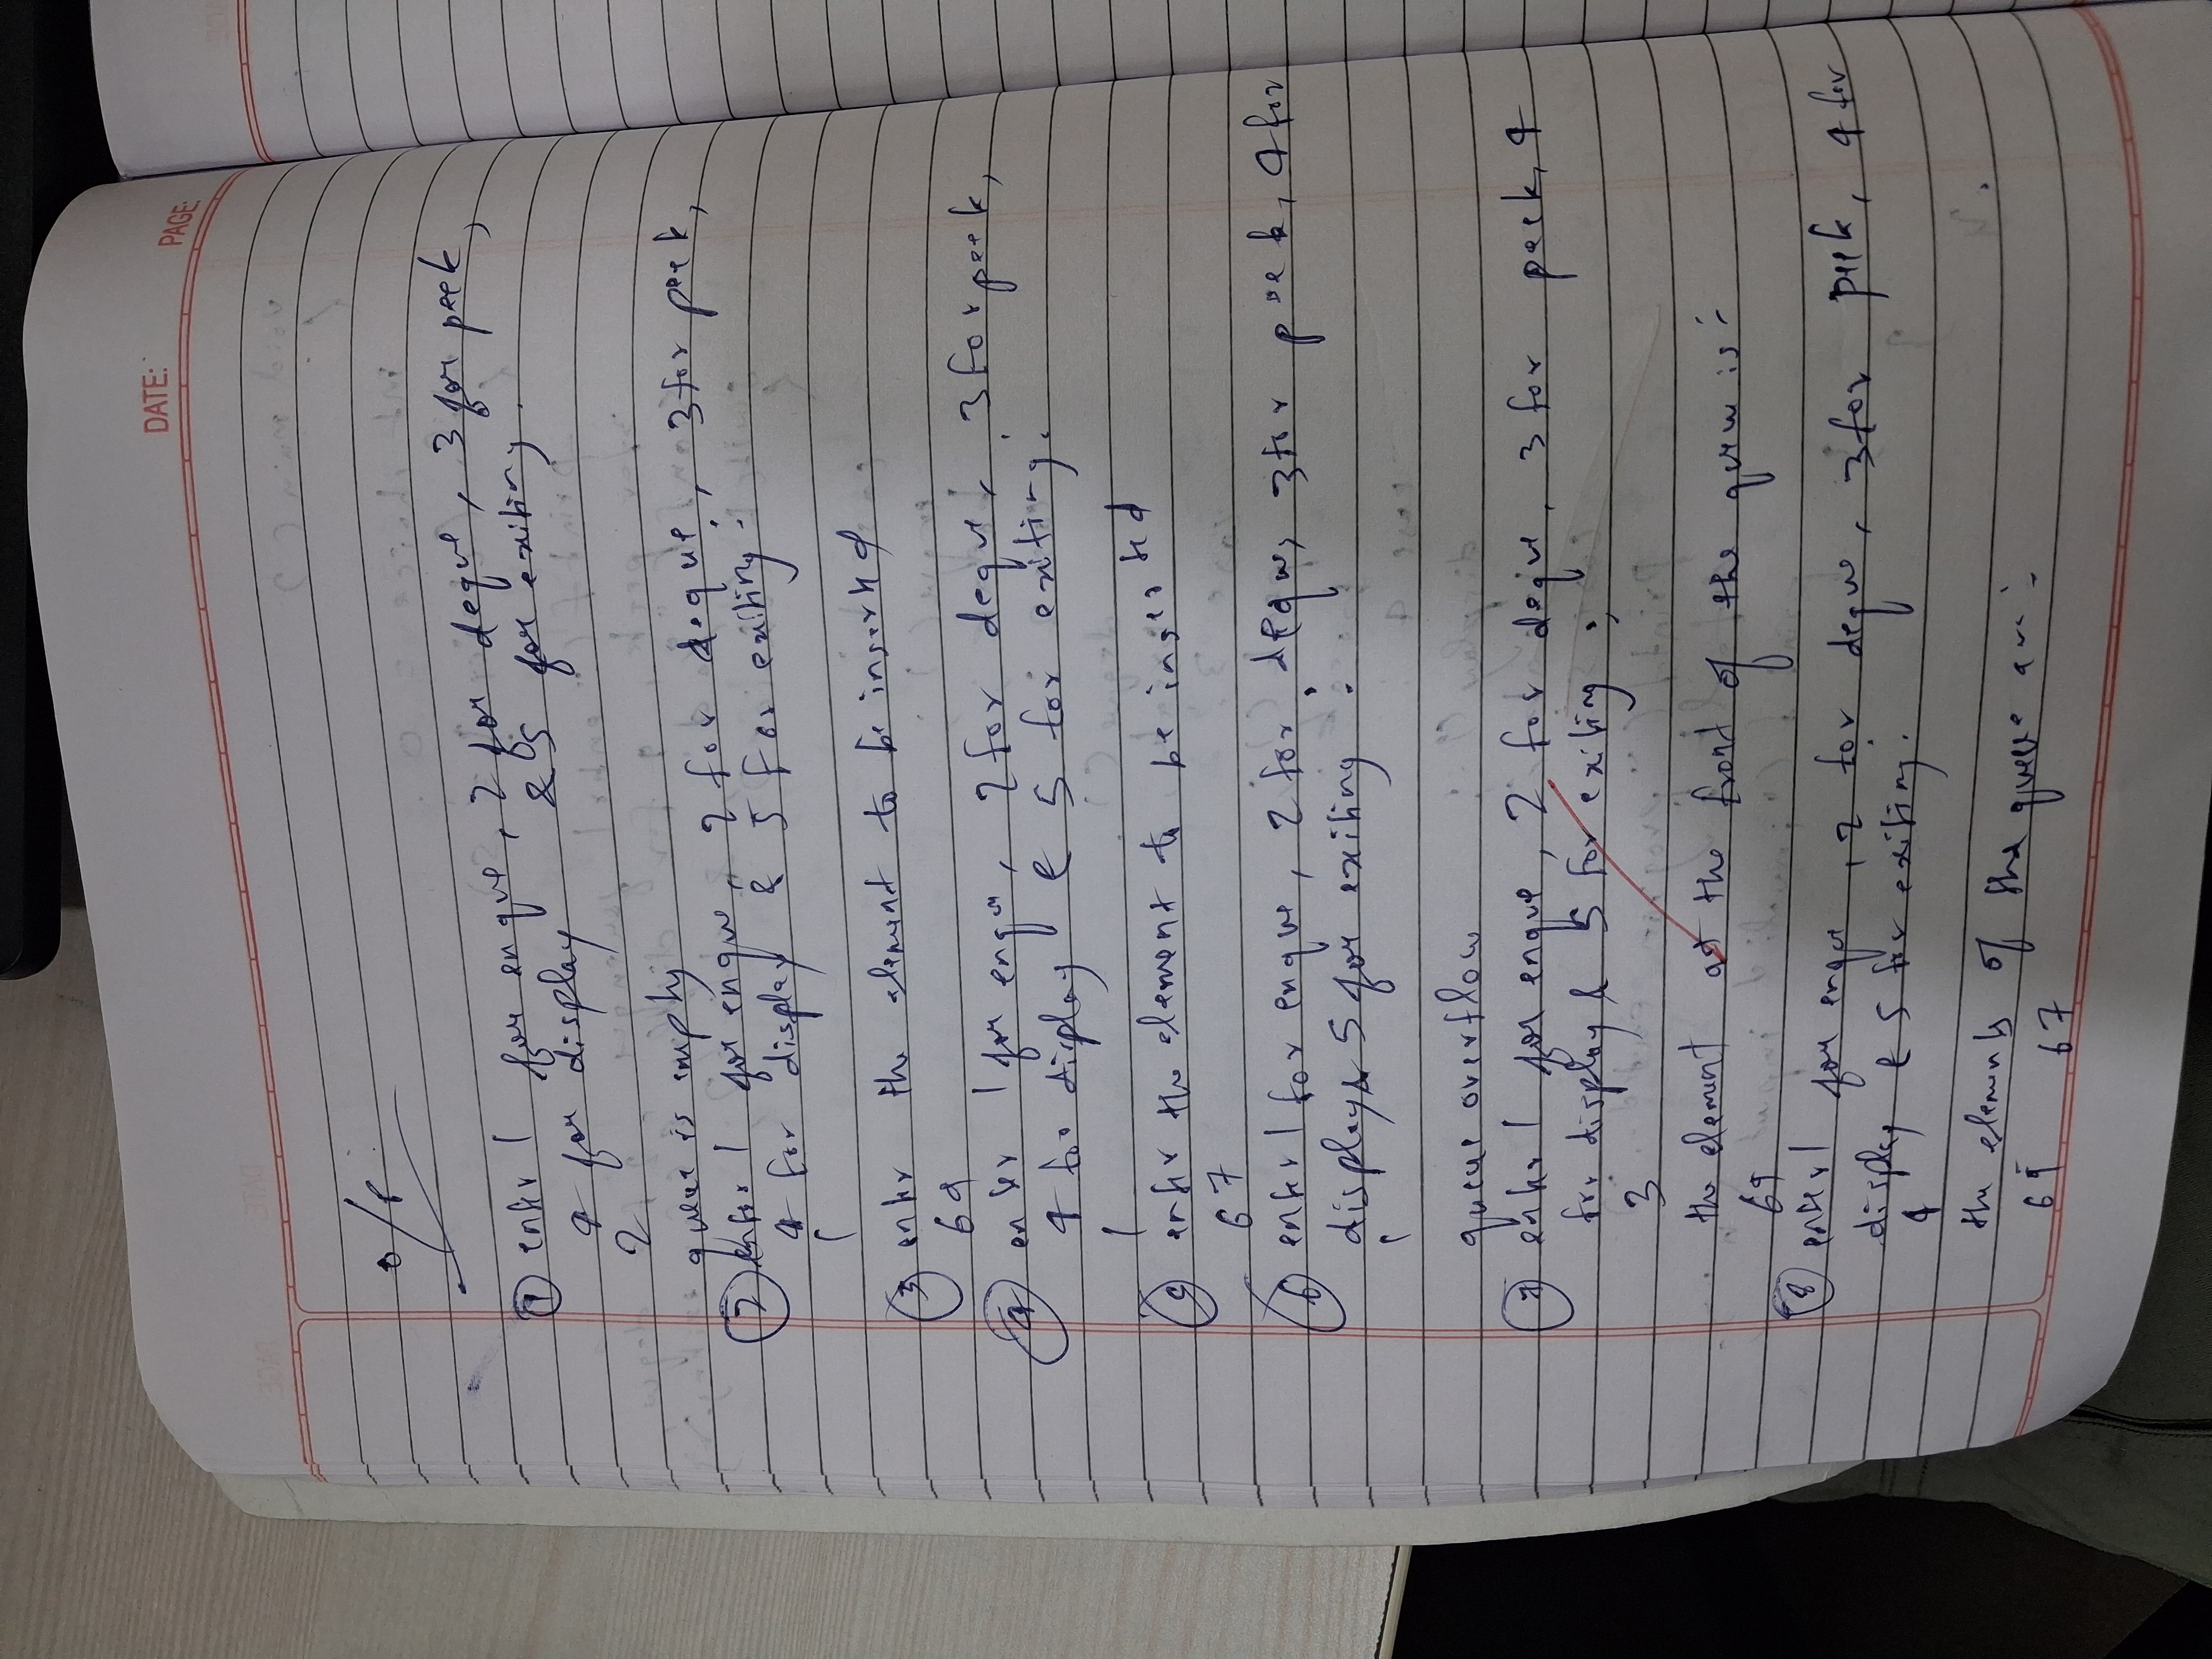 DATE:
PAGE:
o/p
① enter 1 for enque, 2 for deque, 3 for peek,
4 for display & 5 for exiting.
2
queue is empty
② enter 1 for enque, 2 for deque, 3 for peek,
4 for display & 5 for exiting:
1
③ enter the element to be inserted
69
④ enter 1 for enque, 2 for deque, 3 for peek,
4 for display & 5 for exiting:
1
⑤ enter the element to be inserted
67
⑥ enter 1 for enque, 2 for deque, 3 for peek, 4 for
display & 5 for exiting :
1
queue overflow
⑦ enter 1 for enque, 2 for deque, 3 for peek, 4
for display & 5 for exiting :
3
the element at the front of the queue is :
69
⑧ enter 1 for enque, 2 for deque, 3 for peek, 4 for
display & 5 for exiting.
4
the elements of the queue are :
69 67